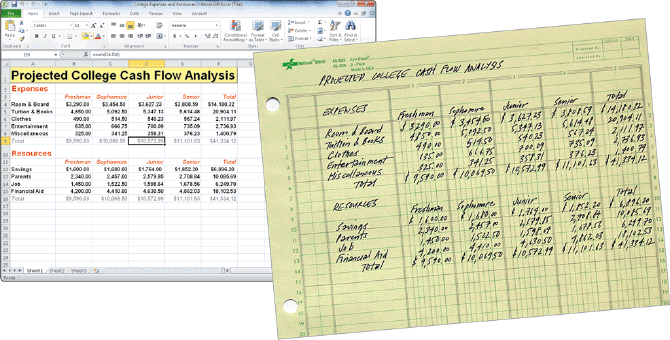 College Expenses and Resources - Microsoft Excel (Trial)
File Home Insert Page Layout Formulas Data Review View
Clipboard Font Alignment Number Styles Cells Editing
D9
Projected College Cash Flow Analysis
Expenses
Freshman Sophomore Junior Senior Total
Room & Board $3,290.00 $3,454.50 $3,627.23 $3,808.59 $14,180.32
Tuition & Books 4,850.00 5,092.50 5,347.13 5,614.48 20,904.11
Clothes 490.00 514.50 540.23 567.24 2,111.97
Entertainment 635.00 666.75 700.09 735.09 2,736.93
Miscellaneous 325.00 341.25 358.31 376.23 1,400.79
Total $9,590.00 $10,069.50 $10,572.99 $11,101.63 $41,334.12
Resources
Freshman Sophomore Junior Senior Total
Savings $1,600.00 $1,680.00 $1,764.00 $1,852.20 $6,896.20
Parents 2,340.00 2,457.00 2,579.85 2,708.84 10,085.69
Job 1,450.00 1,522.50 1,598.64 1,678.56 6,249.70
Financial Aid 4,200.00 4,410.00 4,630.50 4,862.03 18,102.53
Total $9,590.00 $10,069.50 $10,572.99 $11,101.63 $41,334.12
Sheet1 Sheet2 Sheet3
National Brand
Made in USA
PROJECTED COLLEGE CASH FLOW ANALYSIS
EXPENSES Freshman Sophomore Junior Senior Total
Room & Board $3,454.50 $3,627.23 $3,808.59 $14,180.32
Tuition & Books 5,092.50 5,347.13 5,614.48 20,904.11
Clothes 490.00 514.50 540.23 567.24
Entertainment 666.75 700.09 735.09 2,736.93
Miscellaneous 325.00 341.25 376.23
Total $9,590.00 $10,069.50 $10,572.99 $11,101.63 $41,334.12
RESOURCES Freshman Sophomore Junior Senior Total
Savings $1,600.00 $1,680.00 $1,764.00 $1,852.20 $6,896.20
Parents 2,340.00 2,457.00 2,708.84 10,085.69
Job 1,450.00 1,522.50 6,249.70
Financial Aid 4,200.00 4,410.00 4,630.50 4,862.03 18,102.53
Total $9,590.00 $10,069.50 $10,572.99 $11,101.63 $41,334.12